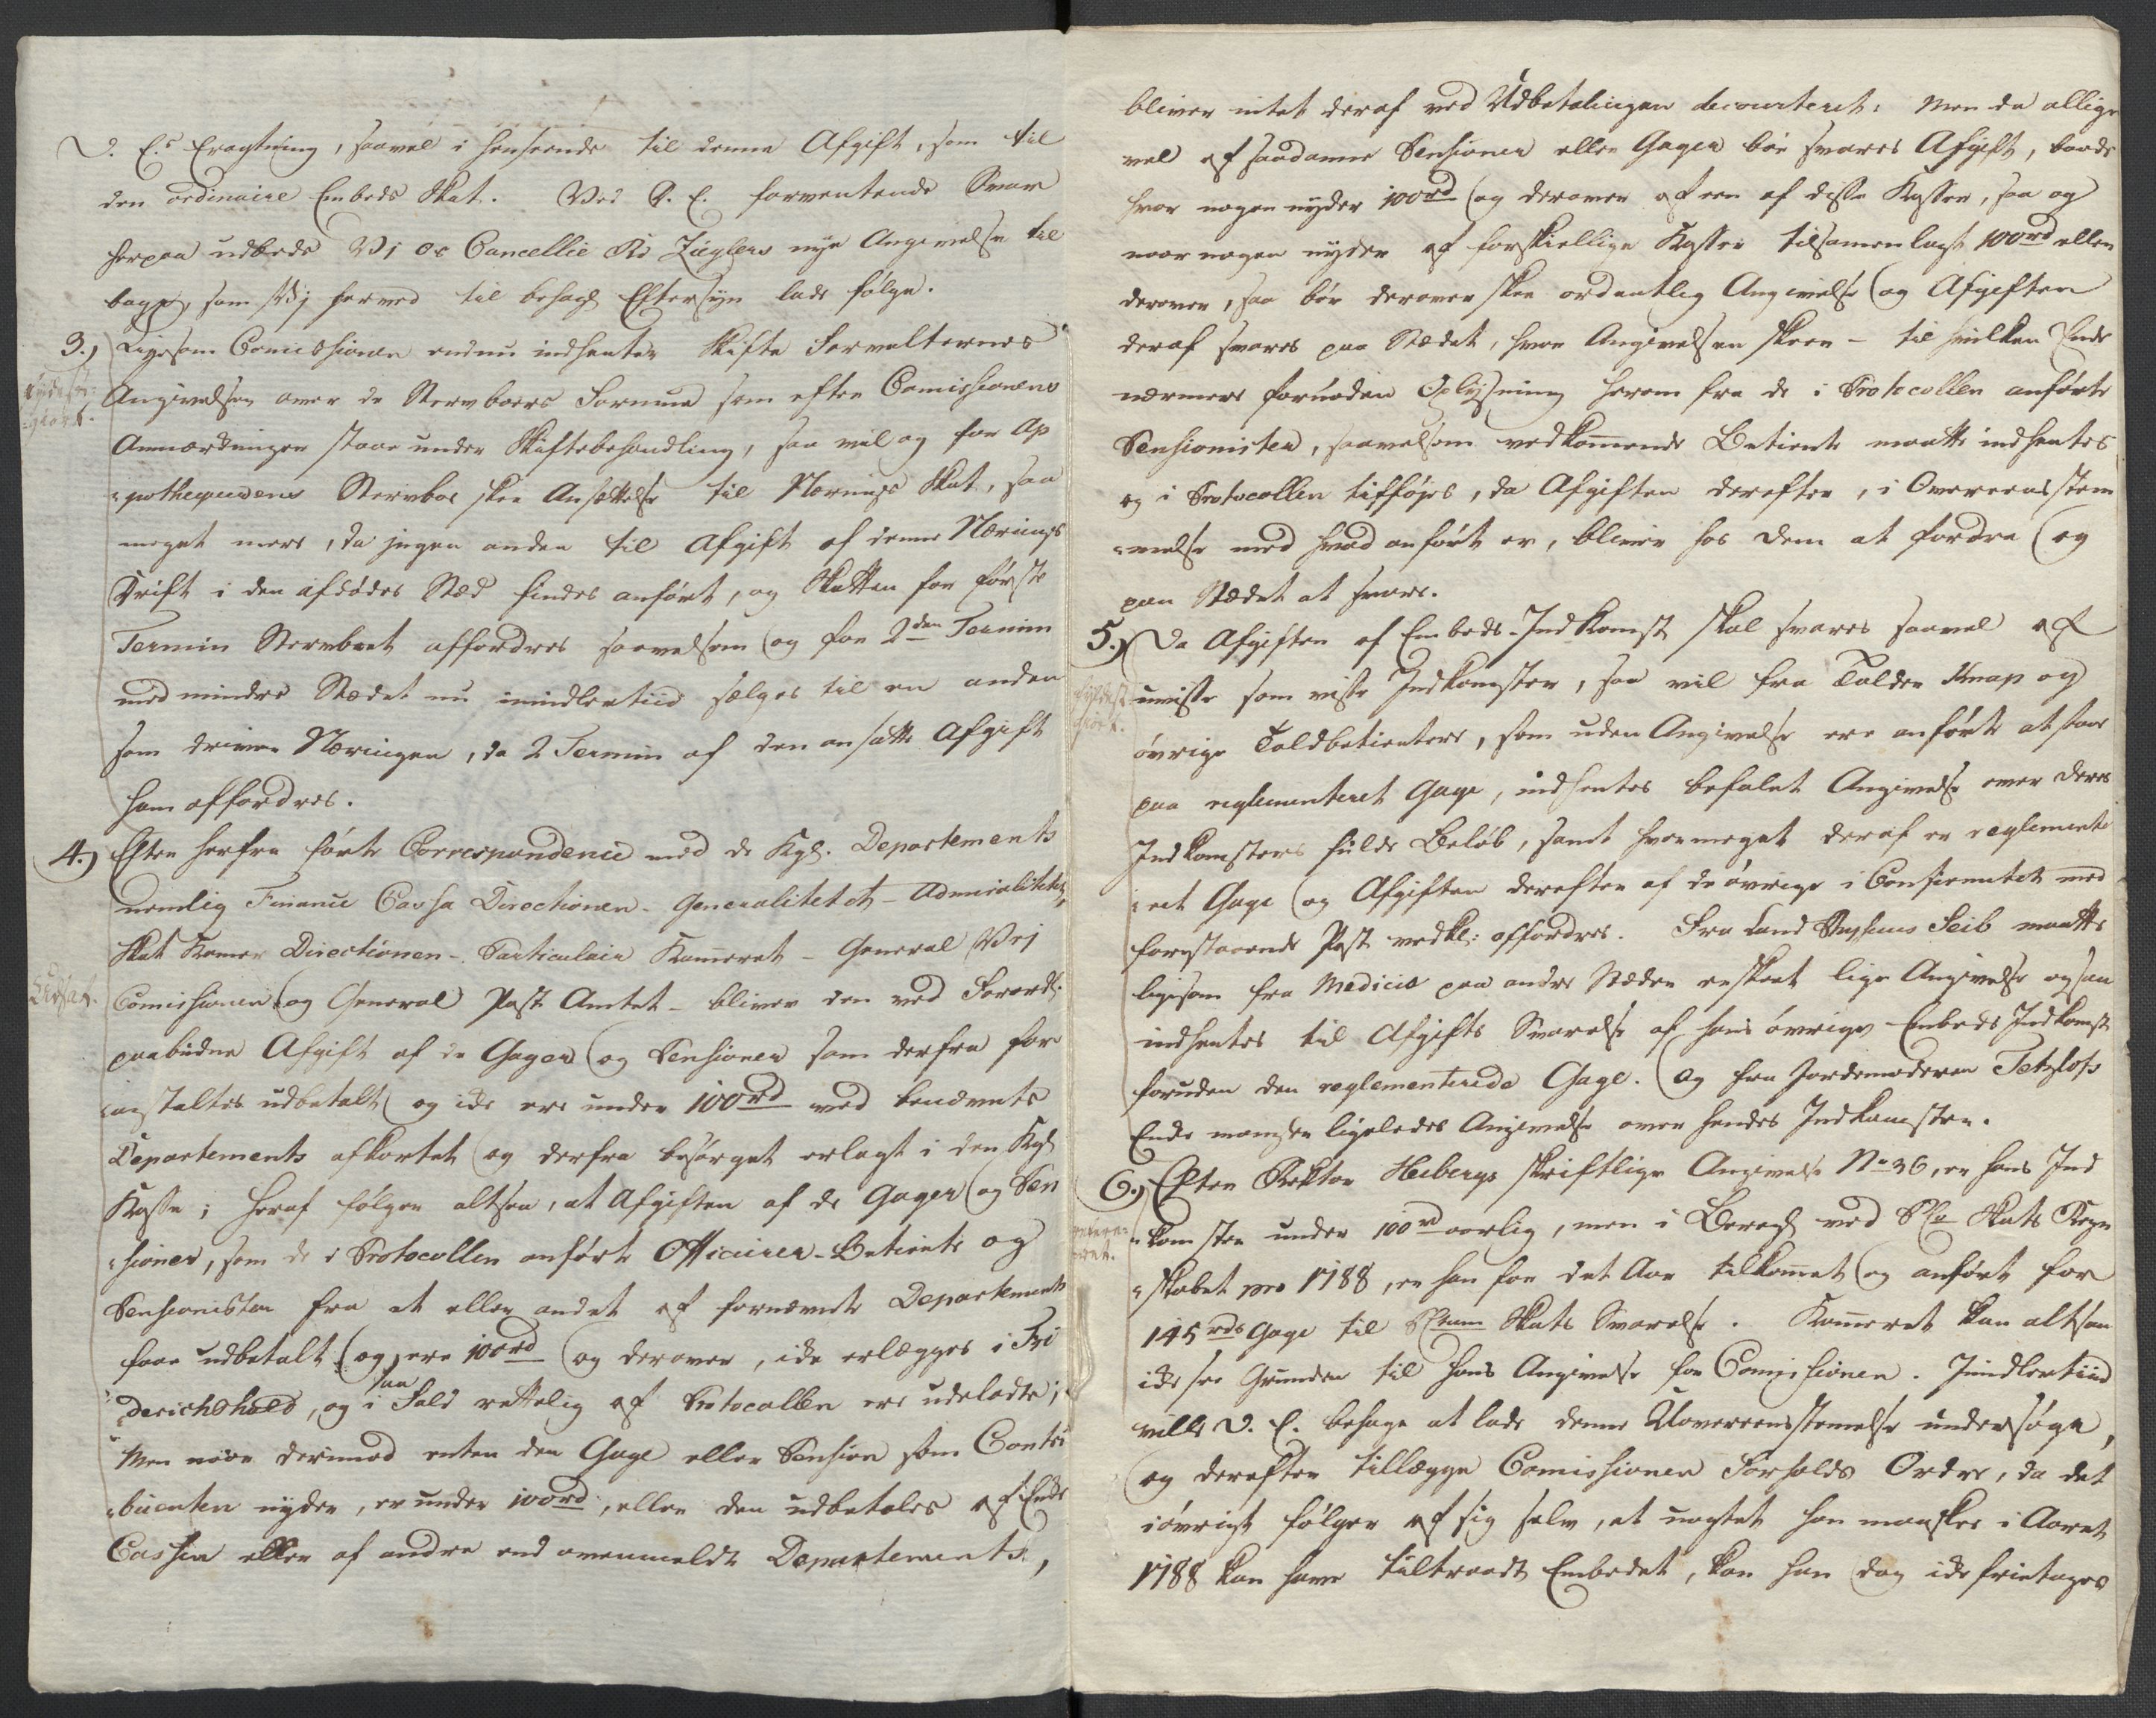 D. E.s Eragtning, saavel i henseende til denne Afgift, som til
den ordinaire Embeds Skat. Ved D. E. forventende Svar
herpaa udbede Vi os Cancellie Rd Zieglers nye Angivelse til
bage, som Vi herved til behagl Eftersyn lade følge.
3.) Ligesom Comissionen endnu indhenter Skifte Forvalternes
Angivelser over de Stervboers Formue som efter Comissionens
Anmærkninger staae under Skiftebehandling, saa vil og for Ap
pothequerens Stervboe skee Ansættelse til Nærings Skat, saa
meget mere, da ingen anden til Afgift af denne Nærings
Drift i den afdødes Sted findes anført, og Skatten for første
Termin Stervboet affordres saavelsom og for 2den Termin
med mindre Stædet nu imidlertiid sælges til en anden
som driver Næringen, da 2 Termin af den ansatte Afgift
ham affordres.
4.) Efter herfra førte Correspondence med de Kgl. Departements
nemlig Finance Cassa Directionen - Generalitetet - Admiralitetet,
Skat Kamer Directionen - Particulair Kammeret - General Vej
Comissionen og General Post Amtet - bliver den ved Forordn:
paabudne Afgift af de Gager og Pensioner som derfra for
anstaltes udbetalt og ikke ere under 100rd ved benævnte
Departements afkortet og derfra besørget erlagt i den Kgl
Kasse; heraf følger altsaa, at Afgiften af de Gager og Pen
sioner, som de i Protocollen anførte Officierer - Betiente og
Pensionister fra et eller andet af fornævnte Departements
faae udbetalt og ere 100rd og derover, ikke erlægges i Fri
derichshald, og i saa Fald rettelig af Protocollen ere udeladte;
Men naar derimod enten den Gage eller Pension som Contri
buenten nyder, er under 100rd, eller den udbetales af Enke
Cassen eller af andre end ovenmeldte Departements,
bliver intet deraf ved Udbetalingen decourteret: Men da allige
vel af saadanne Pensioner eller Gager bør svares Afgift, baade
hvor nogen nyder 100rd og derover af een af disse Kasser, saa og
naar nogen nyder af forskiellige Kasser tilsamenlagt 100rd eller
derover, saa bør derover skee ordentlig Angivelse og Afgiften
deraf svares paa Stædet, hvor Angivelsen skeer - til hvilken Ende
nærmere fornøden Oplysning herom fra de i Protocollen anførte
Pensionister, saavelsom vedkommende Betiente maatte indhentes
og i Protocollen tilføjes, da Afgiften derefter, i Overeensstem
melse med hvad anført er, bliver hos dem at fordre og
paa Stædet at svare.
5.) Da Afgiften af Embeds-Indkomst skal svares saavel af
uvisse som visse Indkomster, saa vil fra Tolder Knap og
øvrige Toldbetientere, som uden Angivelse ere anførte at staae
paa reglementeret Gage, indhentes befalet Angivelse over deres
Indkomsters fulde Beløb, samt hvormeget deraf er reglemente
ret Gage og Afgiften derefter af de øvrige i Consumtet med
forestaaende Post vedkl: affordres. Fra Land Physicus Seib maatte
ligesom fra Medicis paa andre Stæder er skeet lige Angivelse ogsaa
indhentes til Afgifts Svarelse af hans øvrige Embeds Indkomst
foruden den reglementerede Gage. Og fra Jordemoderen Tetzloss
Ende mangler ligeledes Angivelse over hendes Indkomster.
6.) Efter Rektor Heibergs skriftlige Angivelse No 36, er hans Ind
komster under 100rd aarlig, men i Beregl ved Skats Regn
skabet pro 1788, er han for det Aar tilkommet og anført for
145rds Gage til Skats Svarelse. Kammeret kan altsaa
ikke see Grunden til hans Angivelse for Comissionen. Imidlertiid
ville D. E. behage at lade denne Uovereensstemelse undersøge,
og derefter tillægge Comissionen Forholds Ordre, da det
iøvrigt følger af sig selv, at uagtet han maaskee i Aaret
1788 kan have tiltraadt Embedet, kan han dog ikke frietages